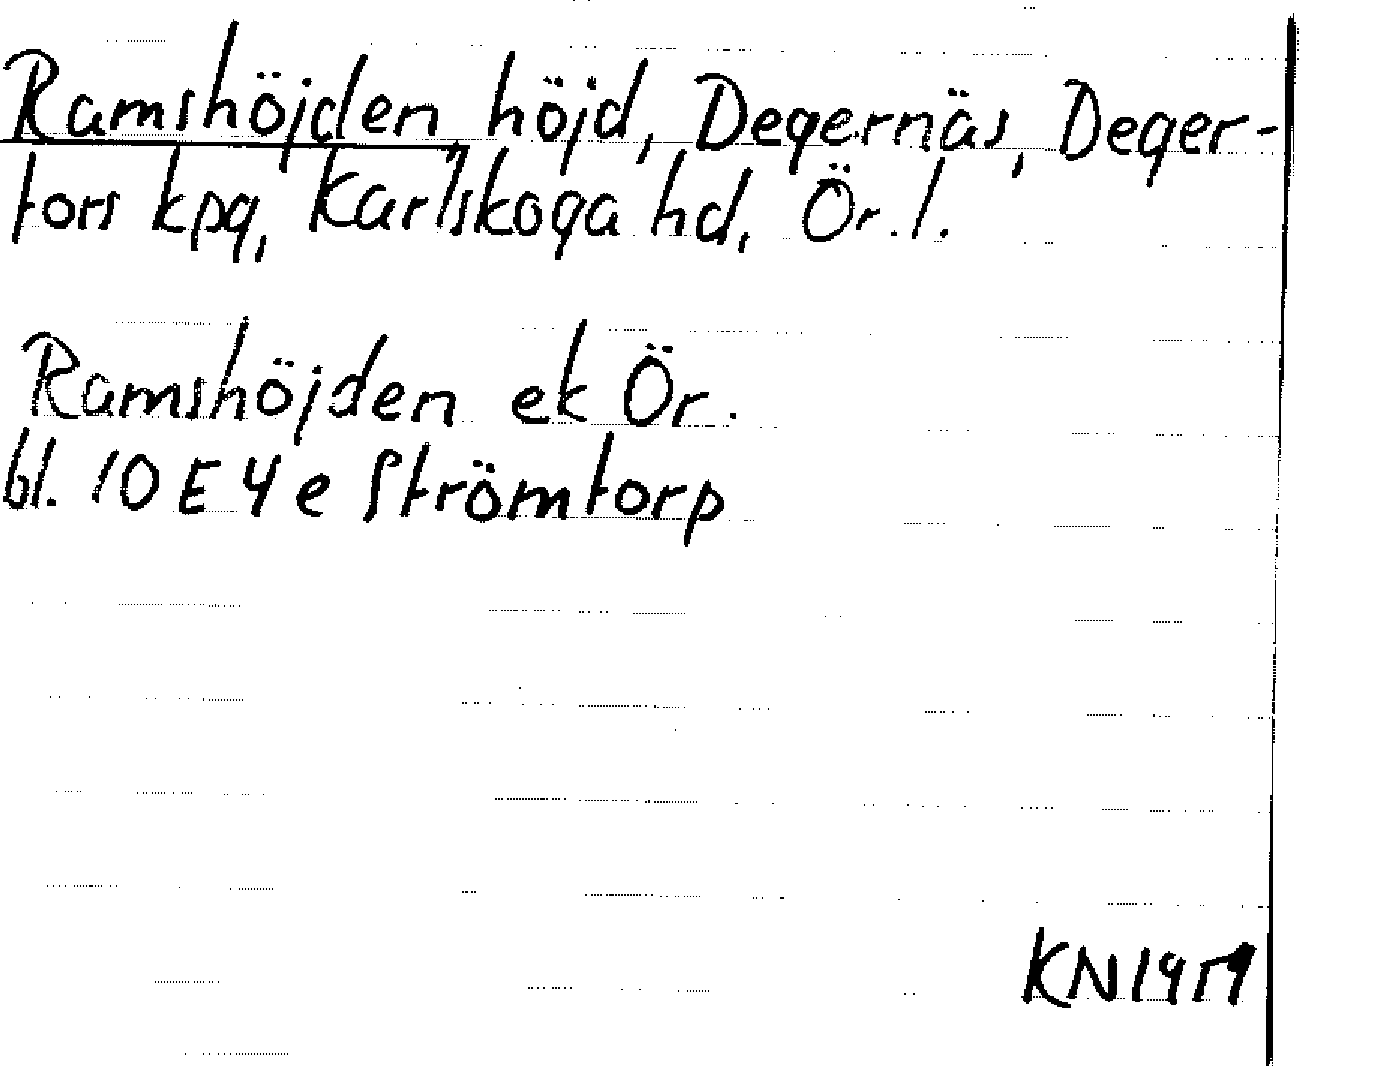 Ramshöjden, höjd, Degernäs, Deger-
fors kpg, Karlskoga hd, Ör. l.
Ramshöjden ek Ör.
bl. 10 E 4 e Strömtorp
KN